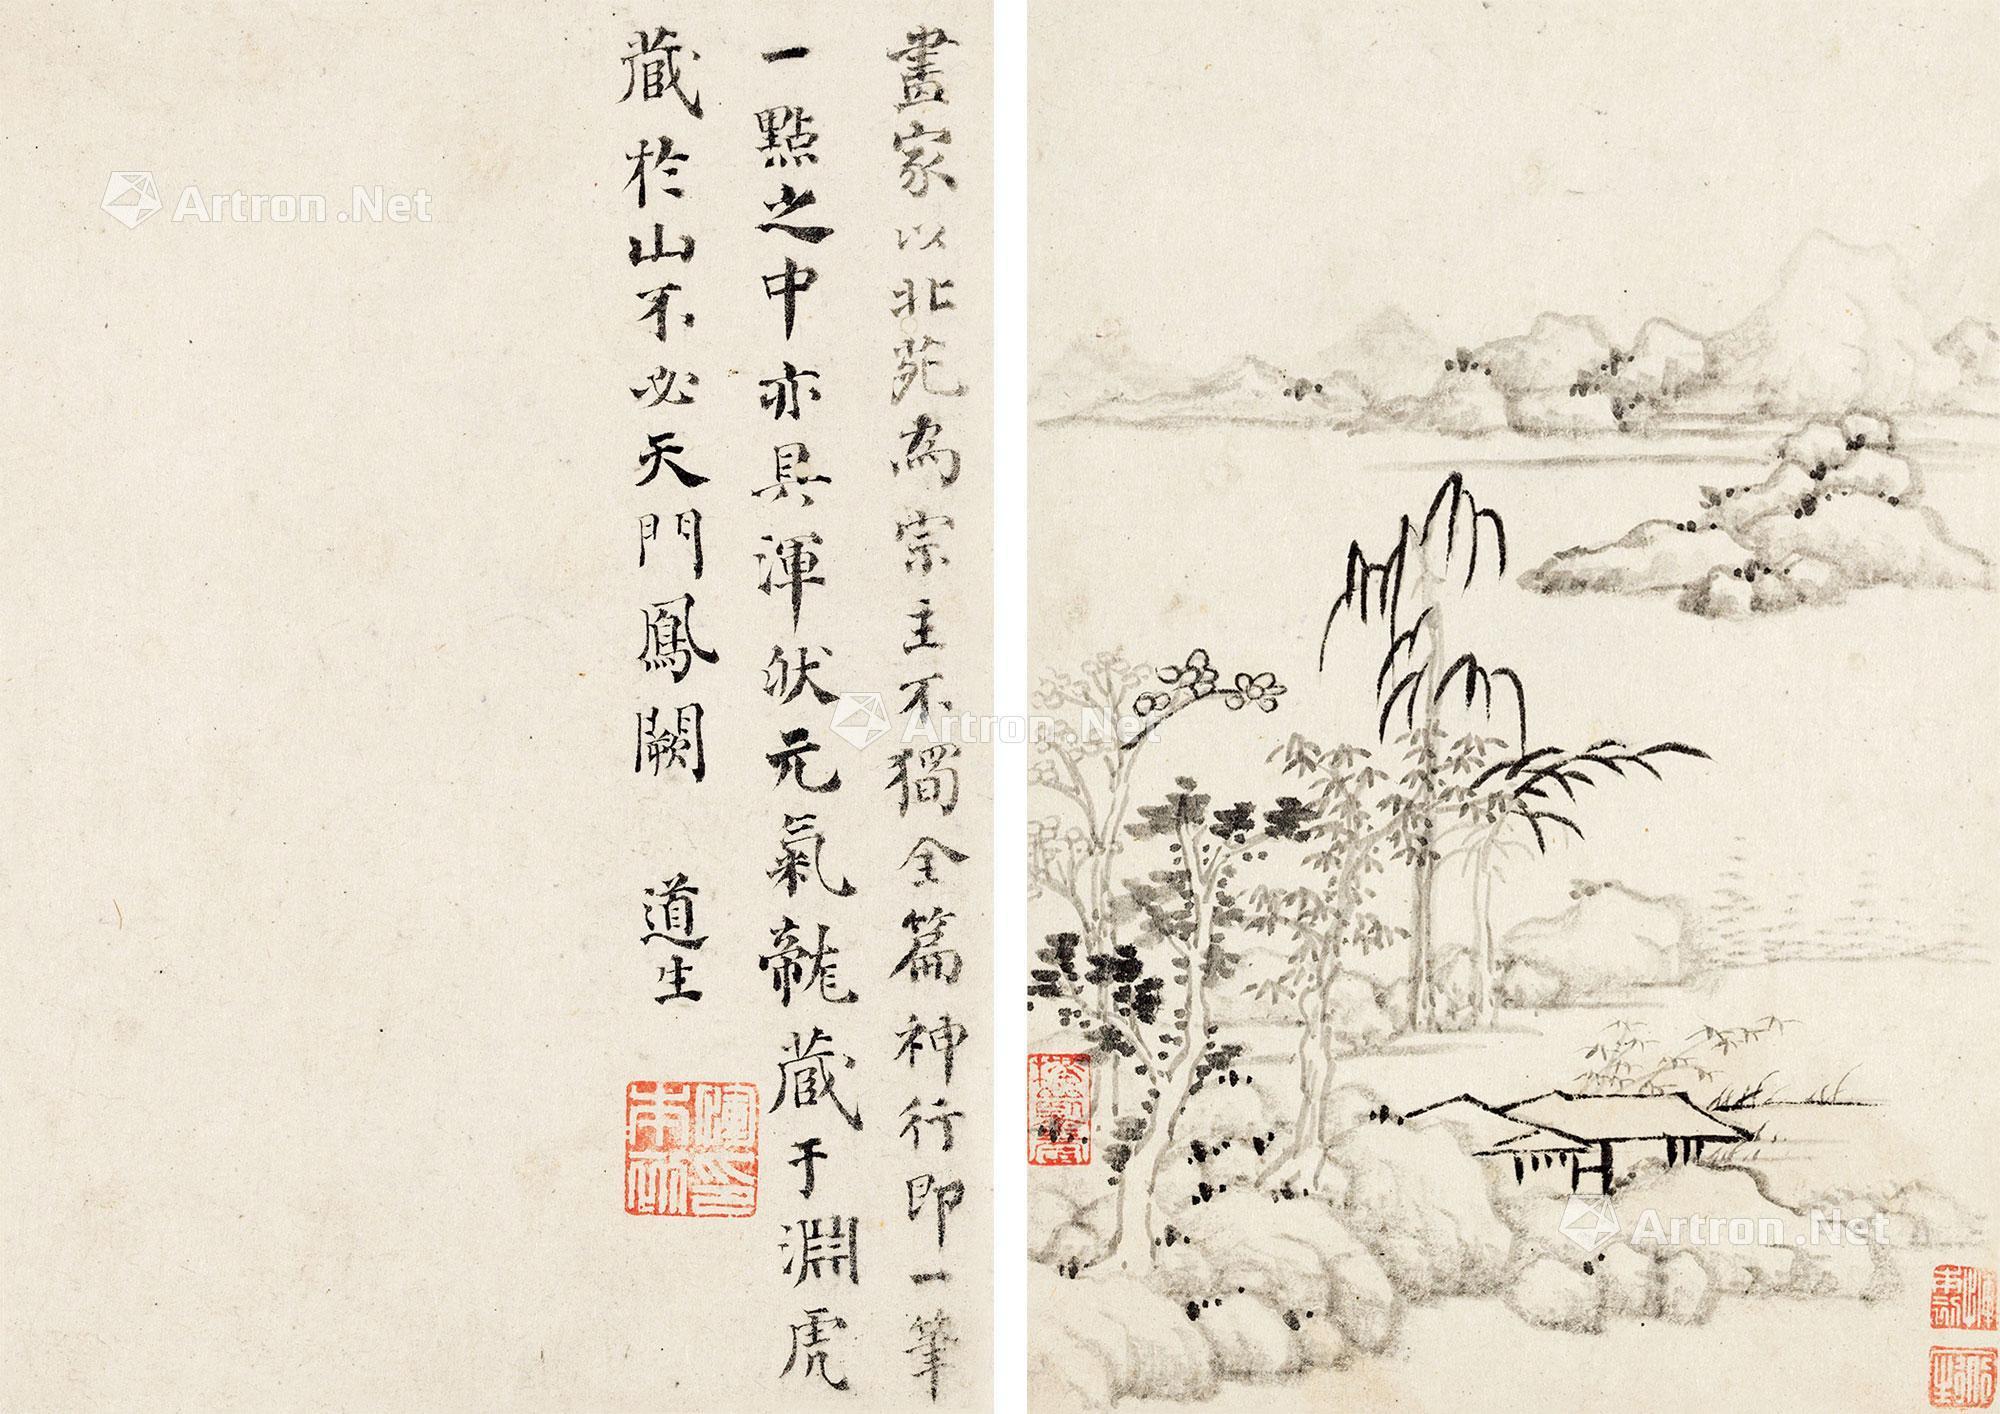 畫家以北苑為宗主不獨全篇神行即一筆
一點之中亦具渾狀元氣龍藏于淵虎
藏於山不必天門鳳闕
道生
Artron.Net
Artron.Net
Artron.Net